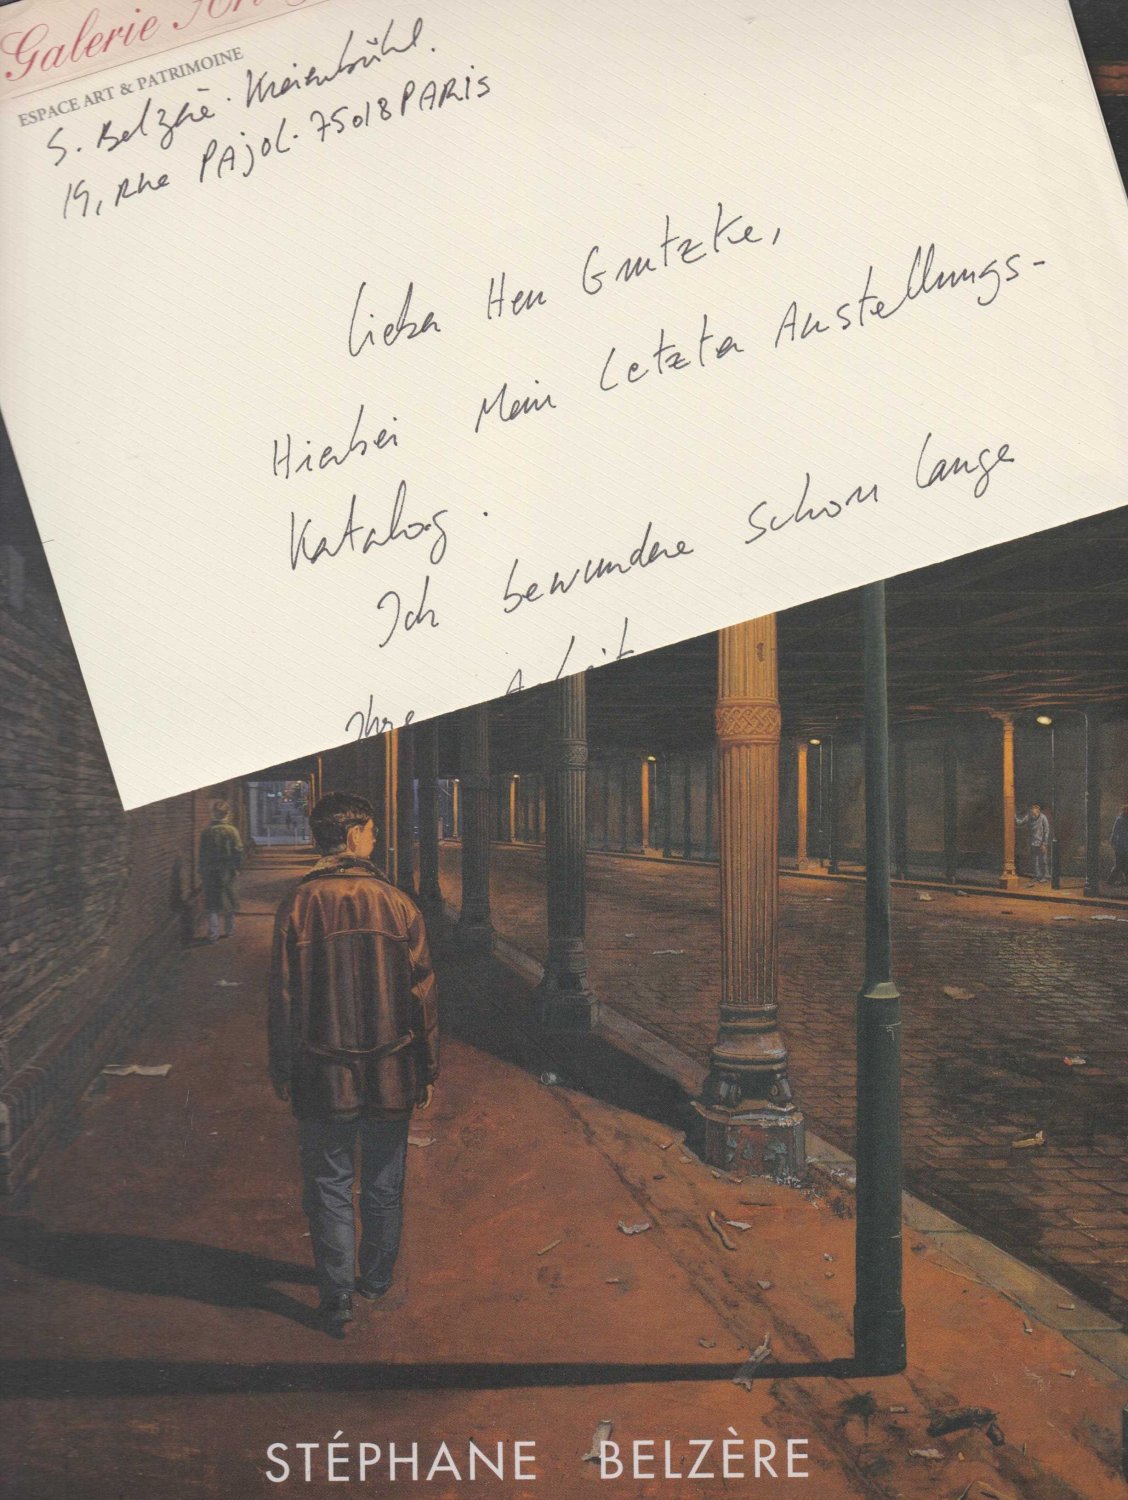 Galerie
ESPACE ART & PATRIMOINE
S. Belzère. Kreienbühl.
19, Rue PAjol. 75018 PARIS
Lieber Herr Grützke,
Hierbei Mein Letzter Austellungs-
Katalog.
Ich bewundere schon lange
Ihre Arbeit
STÉPHANE BELZÈRE